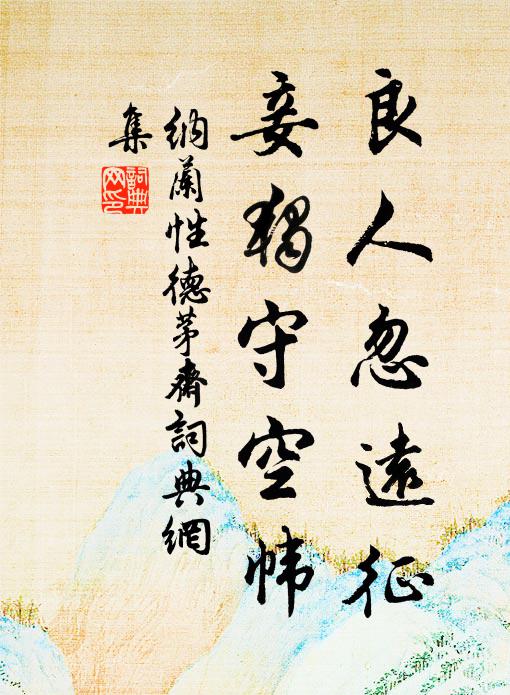 良人忽遠征
妾獨守空幃
納蘭性德茅齋詞典網
集
詞典網印